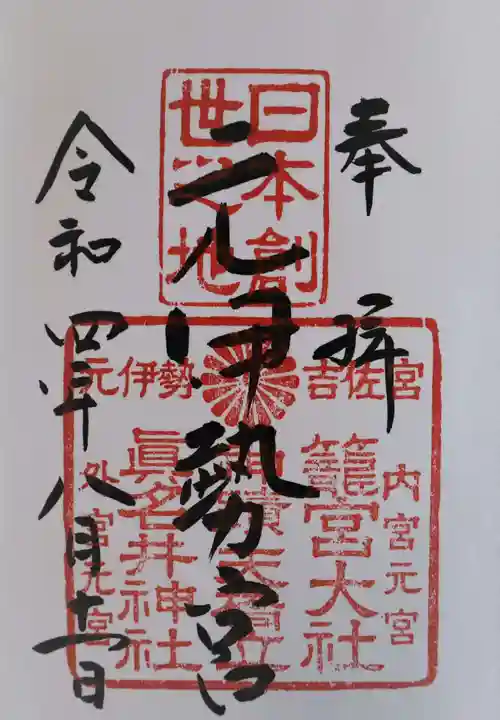 奉拝
日本創
世之地
元伊勢宮
吉佐宮
元伊勢
内宮元宮
籠宮大社
眞名井神社
外宮元宮
令和四年八月十一日